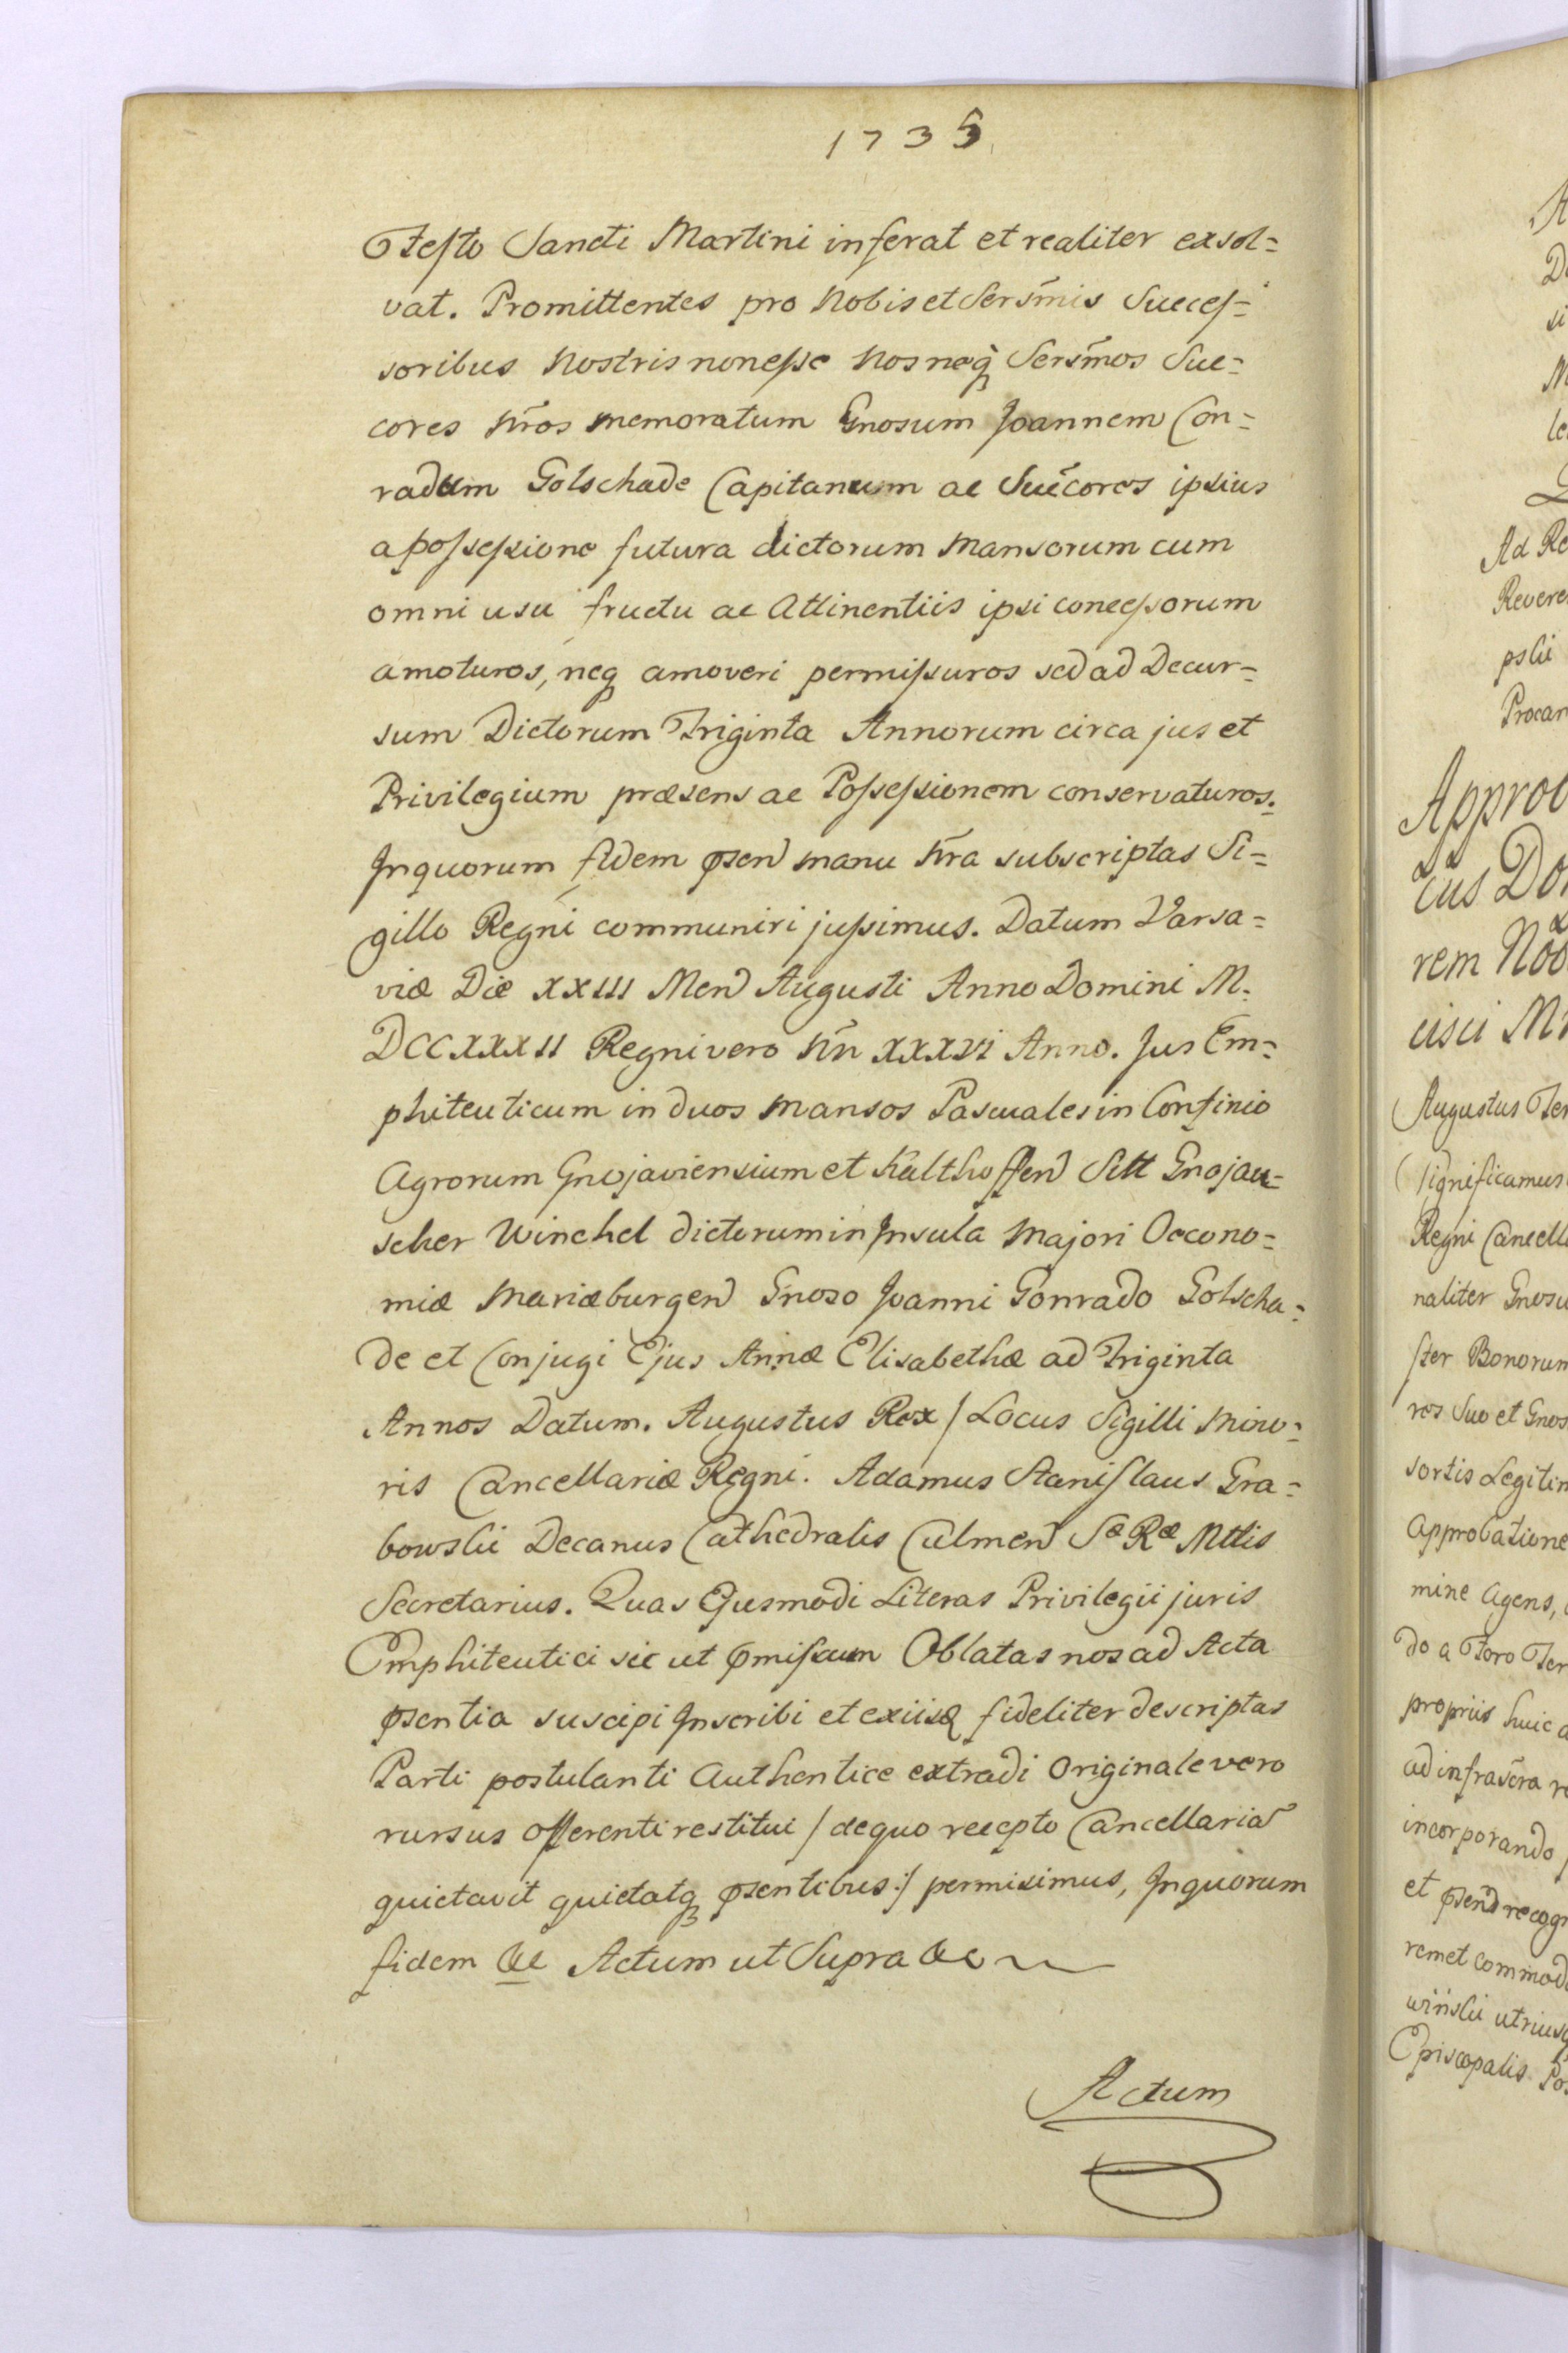 1735
Festo Sancti Martini inferat et realiter exsol=
vat. Promittentes pro Nobis et Serm̃is Succes=
soribus Nostris non esse Nos neq̃ Serm̃os Suc=
cores Nr̃os memoratum Gnosum Joannem Con=
radum Golschade Capitaneum ac Succ̃ores ipsius
a possessione futura dictorum Mansorum cum
omni usu fructu ac Attinentiis ipsi concessorum
amoturos, neq amoveri permissuros sed ad Decur=
sum Dictorum Triginta Annorum circa jus et
Privilegium præsens ac Possessionem conservaturos.
In quorum fidem p̃sen manu Nr̃a subscriptas Si=
gillo Regni communiri jussimus. Datum Varsa=
viæ Die XXIII Men Augusti Anno Domini M.
DCCXXXII Regni vero Nr̃i XXXVI Anno. Jus Em=
phiteuticum in duos Mansos Pascuales in Confinio
Agrorum Gnojaviensium et Kalthoffen Sitt Gnojau=
scher Winckel dictorum in Insula Majori Oecono=
miæ Mariæburgen Gnoso Joanni Conrado Golscha=
de et Conjugi Ejus Annæ Elisabethæ ad Triginta
Annos Datum. Augustus Rex / Locus Sigilli Mino=
ris Cancellariæ Regni. Adamus Stanislaus Gra=
bowski Decanus Cathedralis Culmen Sæ Ræ Mttis
Secretarius. Quas Ejusmodi Literas Privilegii juris
Emphiteutici sic ut p̃missum Oblatas nos ad Acta
p̃sentia suscipi Inscribi et ex iisq fideliter descriptas
Parti postulanti Authentice extradi Originale vero
rursus Offerenti restitui / de quo recepto Cancellariã
quietavit quietatq p̃sentibus :/ permisimus, In quorum
fidem &c Actum ut Supra &c
Actum
Ad Re
Revere
pski
Procan
Approb
cius Do
rem Nob
cisci M
Augustus Ter
Significamus
Regni Cancell
naliter Gnosu
ster Bonorum
res Suo et Gnos
sortis Legitim
Approbatione
mine Agens,
do a Foro Ter
propriis huic a
ad infrascr̃a r
incorporando
et p̃sen recogn
rem et commod
wiński utriusq
Episcopalis Pos